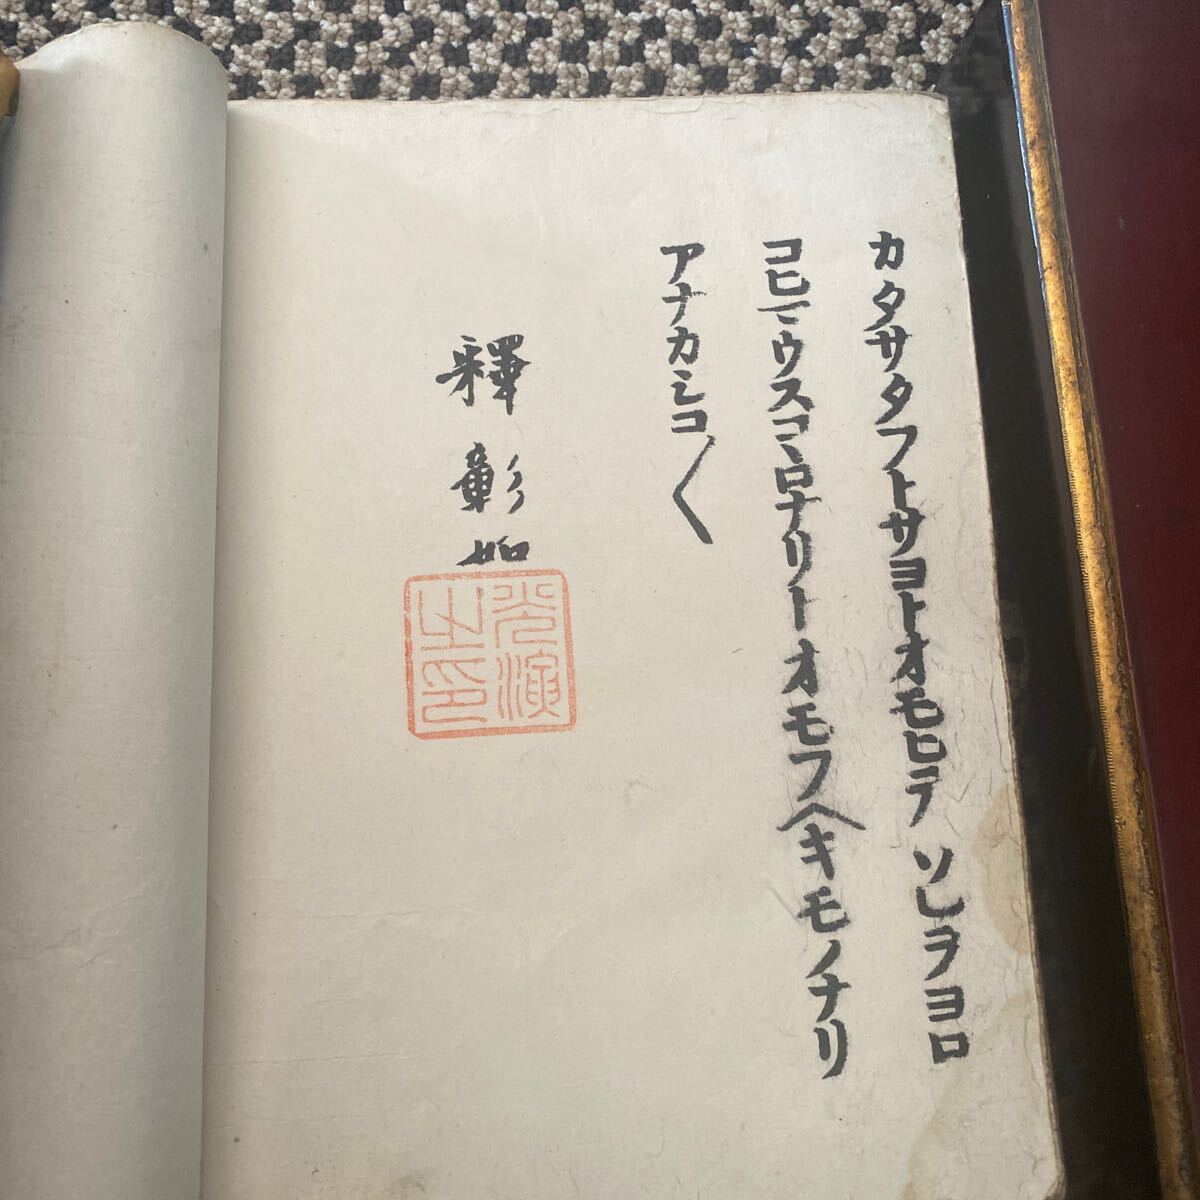 カタサタフトサヨトオモヒテソレヲヨロ
コヒマウスコヽロナリトオモフヘキモノナリ
アナカシコ〱
釋彰如
光演
之印